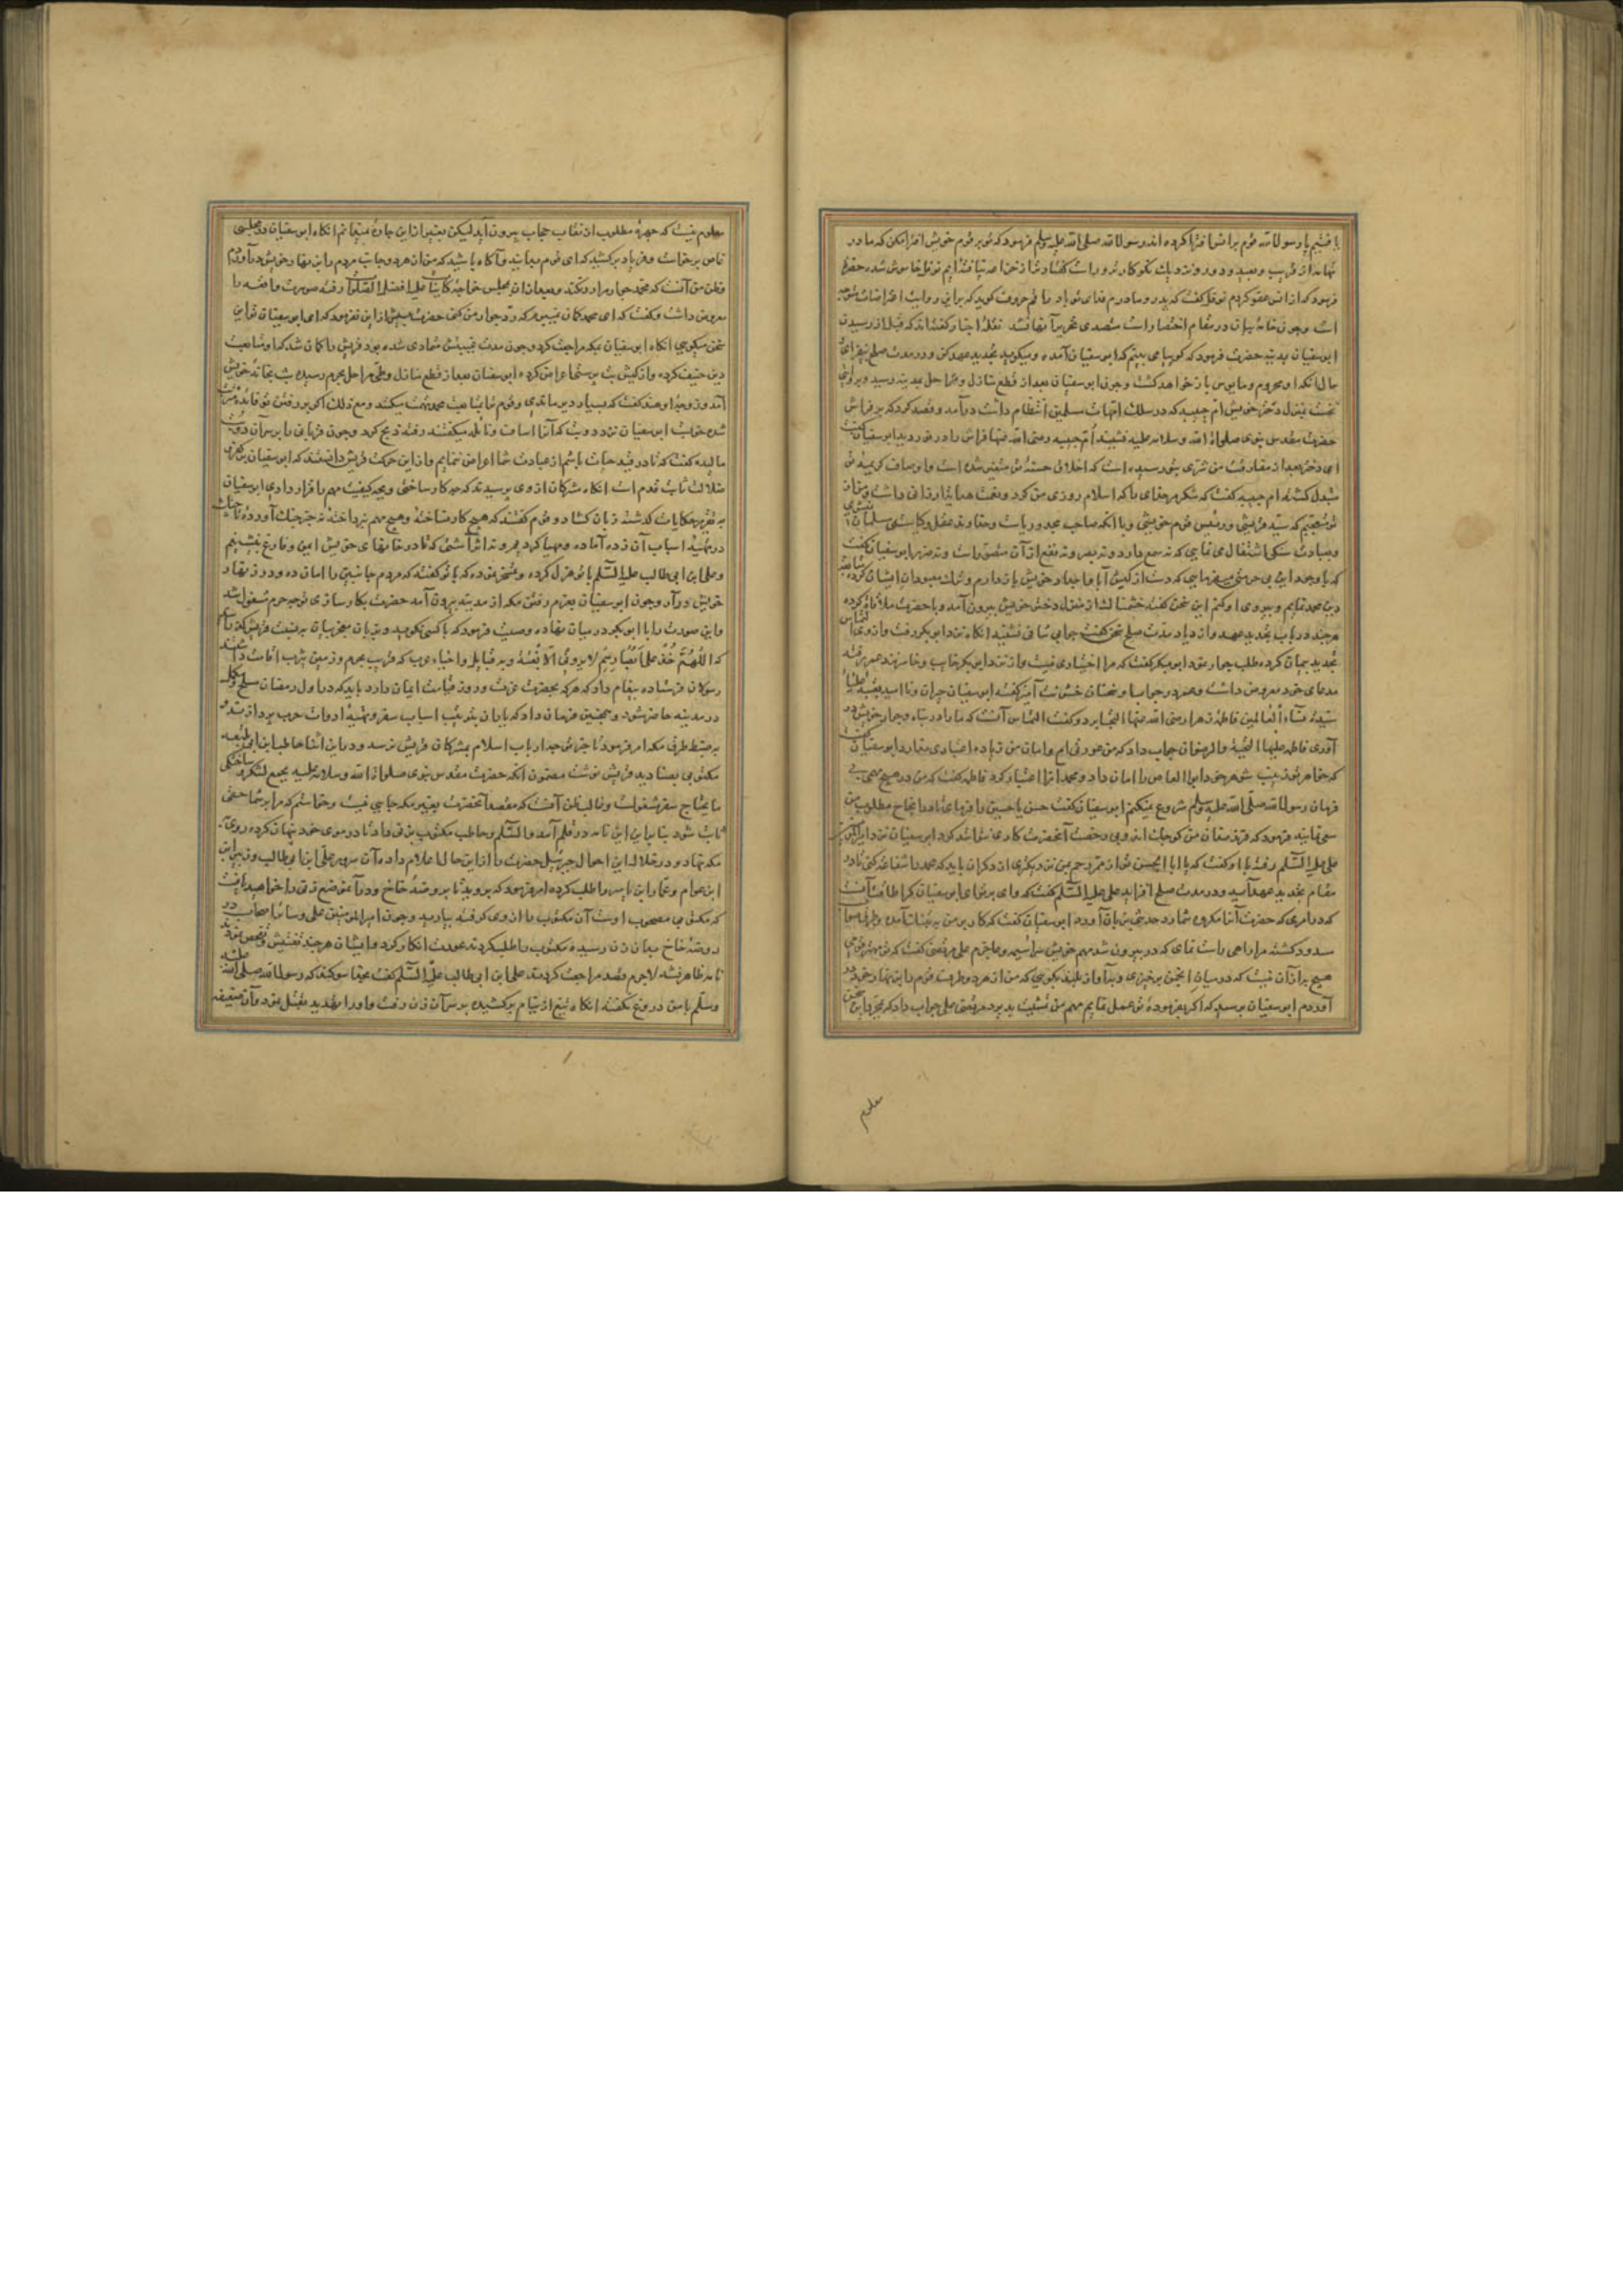 یا فتیم یا رسول الله قوم بر انشا افترا کرده اند رسول الله صلی الله علیه وسلم فرمود که تو بر قوم خویش افترا مکن که ما در
فرمود که از انس عفو کردم نوفل گفت که پدر و مادرم فدای تو باد راقم حروف گوید که بر این روایت اعتراضات متوجه
است و چون خامهٔ بیان در مقام اختصار است متصدی تحریر آنها نشد نقلهٔ اخبار گفته اند که قبل از رسیدن
ابوسفیان بمدینه حضرت فرمود که گویا می بینم که ابوسفیان آمده و میگوید تجدید عهد کن و در مدت صلح بیفزای
مال آنکه او محروم و مأیوس باز خواهد گشت و چون ابوسفیان بعد از قطع منازل و مراحل بمدینه رسید
نخست بمنزل دختر خویش ام حبیبه که در سلک امهات مسلمین انتظام داشت در آمد و قصد کرد که بر فراش
حضرت مقدس نبوی صلوات الله و سلامه علیه نشیند ام حبیبه رضی الله عنها فراش را در نوردید ابوسفیان گفت
ای دختر بعد از مفارقت من شری بتو رسیده است که اخلاق حسنهٔ تو متغیر شده است و اوصاف کریمهٔ تو
متبدل گشته ام حبیبه گفت که شکر مر خدای را که اسلام روزی من کرد و نعمت هدایت ارزانی داشت
تو متعجبم که سید قریشی و رئیس قوم خویشی و با آنکه صاحب مجد و ریاست و خداوند عقل و کیاستی مسلمان نمیشوی
و بعبادت سنگی اشتغال می نمایی که نه سمع دارد و نه بصر و نه نفع از آن متصور است و نه ضرر ابوسفیان گفت
که با وجود این بی حرمتی میفرمایی که دست از کیش آبا و اجداد خویش باز دارم و ترک معبودان ایشان کرده متابعت
دین محمد نمایم و پیروی او کنم این سخن گفته خشمناک از منزل دختر خویش بیرون آمد و با حضرت ملاقات کرده
هر چند در باب تجدید عهد و ازدیاد مدت صلح سخن گفت جوابی شافی نشنید آنگاه نزد ابوبکر رفت و از وی التماس
تجدید پیمان کرده طلب جوار نمود ابوبکر گفت که مرا اختیاری نیست و از نزد ابوبکر خایب و خاسر نزد عمر رفته
مدعای خود معروض داشت و عمر در جواب او سخنان خشونت آمیز گفته ابوسفیان حیران و ناامید
سیدهٔ نساء العالمین فاطمهٔ زهرا رضی الله عنها التجا برد و گفت التماس آنست که ما را در پناه و جوار خویش در
آوری فاطمه علیها التحیة والرضوان جواب داد که من عورتی ام و امان من زیاده اعتباری ندارد ابوسفیان گفت
که خواهر تو زینب شوهر خود ابوالعاص را امان داد و محمد آنرا اعتبار کرد فاطمه گفت که من در هیچ مهمی بی
فرمان رسول الله صلی الله علیه وسلم شروع نمیکنم ابوسفیان گفت حسن یا حسین را فرمای تا در انجاح مطلوب من
سعی نمایند فرمود که فرزندان من کوچک اند و بی رخصت آنحضرت کاری نتوانند کرد ابوسفیان نزد امیرالمؤمنین
علی علیه السلم رفته با او گفت که یا ابا الحسن تو از عمر رحیم تری از دیگران باید که محمد را شفاعت کنی تا در
مقام تجدید عهد آید و در مدت صلح افزاید علی علیه السلم گفت که وای بر تو ای ابوسفیان کرا طاقت آنست
که در امری که حضرت آنرا مکروه شمارد حدیثی بزبان آورد ابوسفیان گفت که کار بر من
مسدود گشته مرا راهی راست نمای که در بیرون شد مهم خویش سراسیمه و عاجزم علی مرتضی گفت که تو مهتر قومی
هیچ به از آن نیست که در میان انجمن برخیزی و به آواز بلند بگویی که من از هر دو طرف قوم را در پناه خود در
آوردم ابوسفیان پرسید که اگر بفرمودهٔ تو عمل نمایم مهم من تمشیت پذیرد مرتضی علی جواب داد که مرا این سخن
معلوم
معلوم نیست که چهرهٔ مطلوب از نقاب حجاب بیرون آید لیکن بغیر از این چاره نمیدانم آنگاه ابوسفیان در مجلسی
خاص برخاست و فریاد برکشید که ای قوم بدانید و آگاه باشید که من از هر دو جانب مردم را در پناه خویش در آوردم
و ظن من آنست که محمد جوار مرا رد نکند و بعد از آن بمجلس خواجهٔ کاینات علیه افضل الصلوات رفته صورت واقعه را
معروض داشت و گفت که ای محمد گمان نمیبرم که رد جوار من کنی حضرت بیش از این نفرمود که ای ابوسفیان تو این
سخن میگویی آنگاه ابوسفیان بمکه مراجعت کرد و چون مدت غیبتش متمادی شده بود قریش را گمان شد که او متابعت
دین حنیف کرده و از کیش بت پرستی اعراض کرده ابوسفیان بعد از قطع منازل و طی مراحل بحرم رسیده شب بخانهٔ خویش
آمد و زوجهٔ او هند گفت که بسیار دیر ماندی و قوم ترا بمتابعت محمد تهمت میکنند و مع ذلک اگر بر رفتن تو فائده مترتب
شده خوبست ابوسفیان نزد دو بت که آنرا اساف و نایله میگفتند رفته ذبح کرد و چون قربانی را بر سر آن دو بت
مالیده گفت که تا در قید حیات باشم از عبادت شما اعراض ننمایم و از این حرکت قریش دانستند که ابوسفیان بر کفر و
ضلالت ثابت قدم است آنگاه مشرکان از وی پرسیدند که چه کار ساختی و بچه کیفیت مهم را قرار دادی ابوسفیان
به تقریر حکایات گذشته زبان گشاد و قوم گفتند که هیچ کار نساختهٔ و هیچ مهم نپرداختهٔ نه خبر جنگ آوردهٔ تا
در تهیهٔ اسباب آن زده آماده و مهیا گردیم و نه اثر آشتی که تا در خانهای خویش ایمن و فارغ بنشینیم
و علی ابن ابی طالب علیه السلم با تو هزل کرده و تمسخر نموده که با تو گفته که مردم جانبین را امان ده و در پناه
خویش در آر و چون ابوسفیان بعزم رفتن مکه از مدینه بیرون آمد حضرت بکارسازی توجه حرم مشغول شد
و این صورت را با ابوبکر در میان نهاده وصیت فرمود که با کسی نگوید و بزبان معجز بیان به نسبت قریش
که اللهم خذ علی ابصارهم لا یرونی الا بغتة و به قبایل و احیاء عرب که قریب بحرم و زمین یثرب اقامت داشتند
رسولان فرستاده پیغام داد که هرکه بحضرت عزت و روز قیامت ایمان دارد باید که در اول رمضان
در مدینه حاضر شود و همچنین فرمان داد که یاران بترتیب اسباب سفر و تهیهٔ ادوات حرب پردازند و
به ضبط طرق مکه امر فرمود تا خبر توجه ارباب اسلام بمشرکان قریش نرسد و در این اثنا حاطب ابن ابی بلتعه
مکتوبی بصنادید قریش نوشت مضمون آنکه حضرت مقدس نبوی صلوات الله وسلامه علیه بجمع لشکر و
مایحتاج سفر مشغولست و غالب ظن آنست که مقصد آنحضرت بغیر مکه جایی نیست و خواستم که مرا بر شما حقی
ثابت شود بنا براین این نامه در قلم آمد والسلم و حاطب مکتوب بزنی داد تا در موی خود پنهان کرده روی به
مکه نهاد و در خلال این احوال جبرئیل حضرت را از این حال اعلام داده آن سرور علی ابن ابی طالب و زبیر ابن
ابن عوام و عمار ابن یاسر را طلب کرده امر فرمود که بروید تا بروضهٔ خاخ و در آن موضع زنی را خواهید یافت
که مکتوبی مصحوب اوست آن مکتوب را از وی گرفته بیارید و چون امیرالمؤمنین علی و سایر اصحاب در
روضهٔ خاخ بدان زن رسیده مکتوب را طلب کردند عورت انکار کرد و ایشان هر چند تفتیش و تفحص نمودند
نامه ظاهر نشد لاجرم قصد مراجعت کردند علی ابن ابی طالب علیه السلم گفت بخدا سوگند که رسول الله صلی الله علیه
وسلم با من دروغ نگفته آنگاه تیغ از نیام برکشیده بر سر آن زن رفت و او را تهدید بقتل نمود و آن ضعیفه